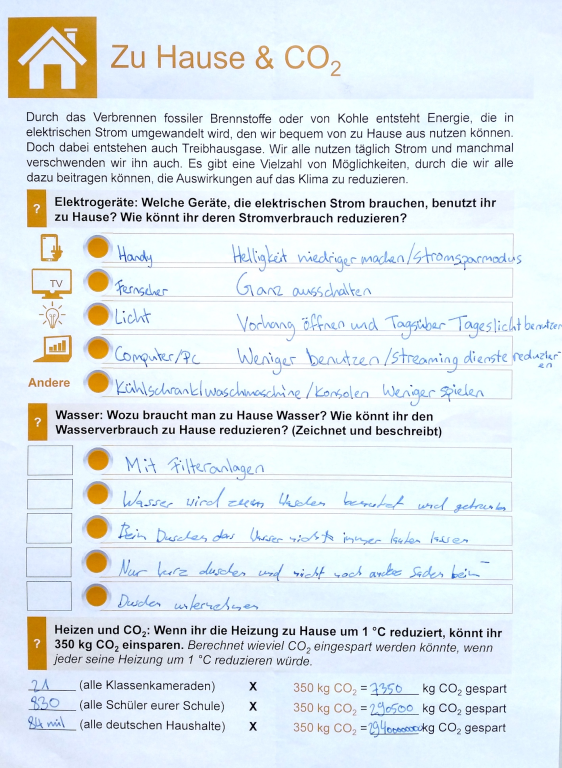 Zu Hause & CO₂
Durch das Verbrennen fossiler Brennstoffe oder von Kohle entsteht Energie, die in
elektrischen Strom umgewandelt wird, den wir bequem von zu Hause aus nutzen können.
Doch dabei entstehen auch Treibhausgase. Wir alle nutzen täglich Strom und manchmal
verschwenden wir ihn auch. Es gibt eine Vielzahl von Möglichkeiten, durch die wir alle
dazu beitragen können, die Auswirkungen auf das Klima zu reduzieren.
? Elektrogeräte: Welche Geräte, die elektrischen Strom brauchen, benutzt ihr
zu Hause? Wie könnt ihr deren Stromverbrauch reduzieren?
Handy Helligkeit niedriger machen/Stromsparmodus
TV Fernseher Ganz ausschalten
Licht Vorhang öffnen und Tagsüber Tageslicht benutzen
Computer/Pc Weniger benutzen/Streaming dienste reduzieren
Andere Kühlschrank/waschmaschine/Konsolen Weniger spielen
? Wasser: Wozu braucht man zu Hause Wasser? Wie könnt ihr den
Wasserverbrauch zu Hause reduzieren? (Zeichnet und beschreibt)
Mit Filteranlagen
Wasser wird zum benutzt und getrunken
Beim Duschen das Wasser nicht immer laufen lassen
Nur kurz duschen und nicht noch andere Sachen beim
Duschen unternehmen
? Heizen und CO₂: Wenn ihr die Heizung zu Hause um 1 °C reduziert, könnt ihr
350 kg CO₂ einsparen. Berechnet wieviel CO₂ eingespart werden könnte, wenn
jeder seine Heizung um 1 °C reduzieren würde.
21 (alle Klassenkameraden) X 350 kg CO₂ = 7350 kg CO₂ gespart
830 (alle Schüler eurer Schule) X 350 kg CO₂ = 290500 kg CO₂ gespart
84 mil (alle deutschen Haushalte) X 350 kg CO₂ = kg CO₂ gespart